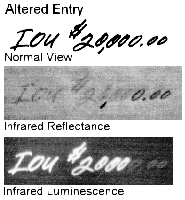 Altered Entry
IOU $20,000.00
Normal View
IOU $2 0.00
Infrared Reflectance
IOU $2000
Infrared Luminescence